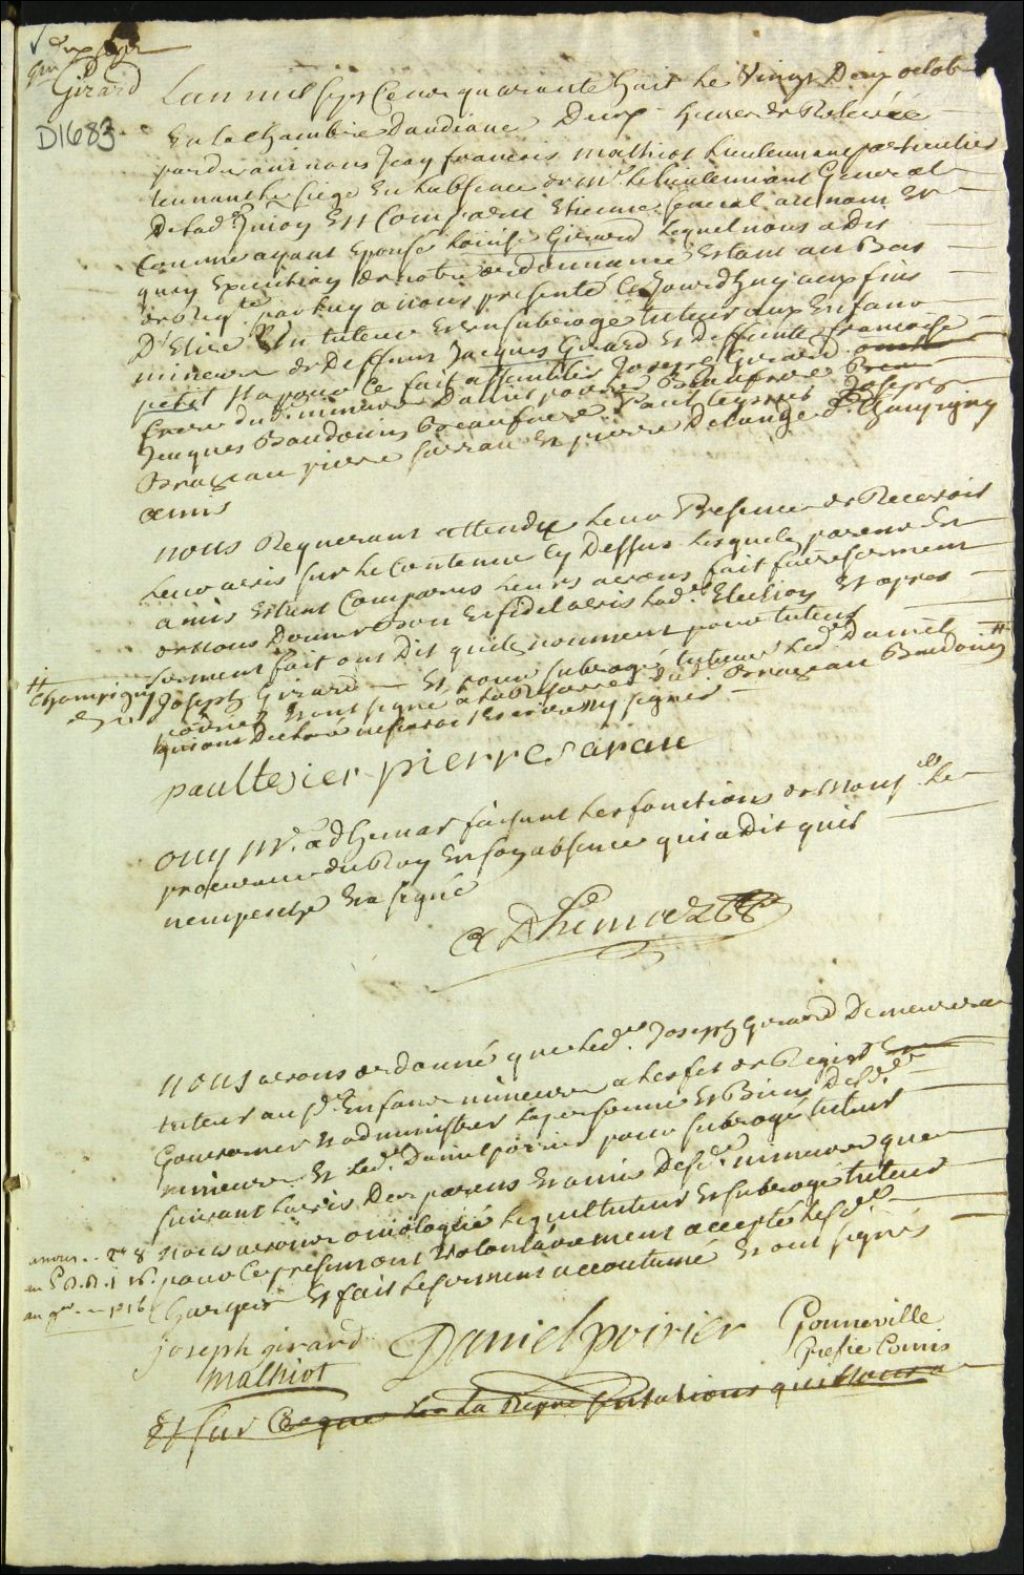 Girard
D1683
Lan mil sept Cent quarante huit le Vingt Deux octob
En la Chambre Daudiance Deux heures de Relevée
pardevant nous Jean francois mathiot Lieutenant particulier
tennant le siege En Labsence de Mr. le Lieutenant General
De lad. Juion Est Comparu Etienne general au nom Et
Comme ayant Epousé Louise Girard Lequel nous a Dit
quen Execution de notre ordonnance Estant au Bas
de Reqte. par luy a nous presenté Cejourdhuy aux fins
D'Elire Un tuteur Et un subrogé tuteur aux Enfans
mineurs de Deffunt Jacques Girard Et Deffunte francoise
petit Il a pour Ce fait assembler Joseph Girard
frere dud. mineurs Daniel poirier Beaufrere
Jacques Baudouin Beaufrere Paul tessier Joseph
Brazeau pierre sarrau Et pierre Delauge dt. Champigny
amis
nous Requerant attendu Leur Presence de Recevoir
Leur avis sur le Contenue Cy Dessus Lesquels parens Et
amis Estant Comparus Leurs avons fait faire serment
de nous Donner Bon Et fidel avis Lad. Election Et apres
serment fait ont Dit quils nomment pour tuteur
Joseph Girard Et pour subrogé tuteur Led. Daniel
poirier Et ont signé a la Reserve dud. Brazeau Baudouin #
# Champigny
qui ont Declaré ne savoir Ecrire ny signer
paul tesier pierre sarau
Ouy Mr. adhemar faisant Les fonctions de Mons. Le
procureur du Roy En son absence qui a Dit quil
nempesche Et a signé
Adhemar
Nous avons ordonné que Led. Joseph Girard Demeurera
tuteur aud. Enfans mineurs a Leffet de Regir
Gouverner Et administrer La personne Et Biens Desd.
mineurs Et Led. Daniel poirier pour subrogé tuteur
suivant Lavis Des parens Et amis Desd. mineurs que
Nous avons omologué Lequel tuteur Et subrogé tuteur
pour Ce present ont Volontairement accepté Lesd.
Charges Et fait Le serment accoutumé Et ont signés
joseph girard Daniel poirier Gonneville
Mathiot Grefie Comis
Et sur Ce que Les La Representations que Nous a